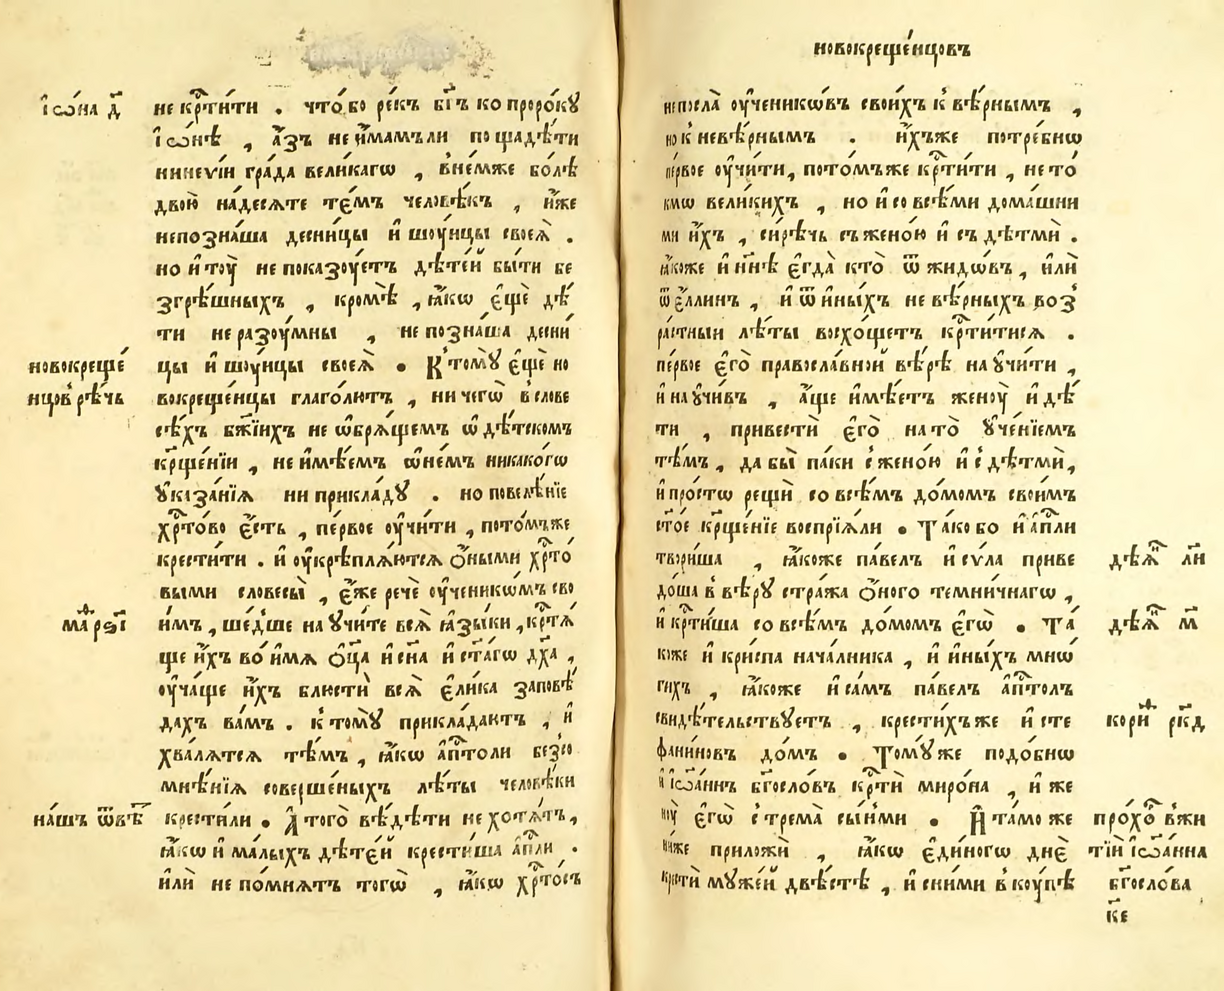 і҆ѡ́на д҃
не кр҇ти́ти . что́ бо ре́къ бг҃ъ ко проро́кꙋ
і҆ѡ́нѣ , а҆́зъ не и҆́мамъ ли пощадѣ́ти
нинеѵі́и гра́да вели́кагѡ , в не́мже бо́лѣ
двою̀ на́десѧте те́мъ человѣ́къ , и҆́же
непозна́ша десни́цы и҆ шоу́ицы своеѧ̀ .
но и҆ тоу̀ не показꙋ́етъ дѣте́й бы́ти бе
згрѣ́шныхъ , кромѣ̀ , ꙗ҆́кѡ є҆щѐ дѣ́
ти не разоу́мны , не позна́ша десни́
новокреще́
цы и҆ шоу́ицы своеѧ̀ . К томꙋ̀ є҆щѐ но
нцовъ рѣ́чь
вокреще́нцы глаго́лютъ , ничегѡ̀ в слове
сѣ́хъ бж҃іихъ не ѡ҆брѧ́щемъ ѡ҆ дѣ́тскомъ
кр҃ще́нїи , не и҆мѣ́емъ ѡ҆ не́мъ никако́гѡ
ᲂу҆каза́нїѧ ни прикла́дꙋ . но повелѣ́нїе
хр҇то́во є҆́сть , пе́рвое ᲂу҆чи́ти , пото́мъже
крести́ти . и҆ ᲂу҆крѣплѧ́ютсѧ ѻ҆́ными хр҇то́
выми словесы̀ , є҆́же речѐ ᲂу҆ченикѡ́мъ сво
маѳ҇ рѕ҃і
и́мъ , ше́дше наꙋчи́те всѧ̀ ꙗ҆зы́ки , кр҇тѧ́
ще и҆́хъ во и҆́мѧ ѻ҆ц҃а̀ и҆ сн҃а и҆ ст҃а́гѡ дх҃а ,
ᲂу҆ча́ще и҆́хъ блюстѝ всѧ̀ є҆ли́ка заповѣ́
дахъ ва́мъ . к томꙋ̀ приклада́ютъ , и҆
хва́лѧтсѧ тѣ́мъ , ꙗ҆́кѡ а҆п҇толи без со
мнѣ́нїѧ соверше́ныхъ лѣ́ты человѣ́ки
на́шъ ѿвѣ҇т
крести́ли . А҆ того̀ вѣ́дѣти не хотѧ́тъ ,
ꙗ҆́кѡ и҆ ма́лыхъ дѣте́й крести́ша а҆п҇ли .
и҆лѝ не по́мнѧтъ тогѡ̀ , ꙗ҆́кѡ хр҇то́съ
новокреще́нцовъ
непосла̀ ᲂу҆ченикѡ́въ свои́хъ к вѣ́рнымъ ,
но к невѣ́рнымъ . и҆́хъже потре́бнѡ
пе́рвое ᲂу҆чи́ти , пото́мъже кр҇ти́ти , не то́
кмѡ вели́кихъ , но и҆ со всѣ́ми дома́шни
ми и҆́хъ , си́рѣчь съ жено́ю и҆ съ дѣтмѝ .
ꙗ҆́коже и҆ нн҃ѣ є҆гда̀ кто̀ ѿ жидо́въ , и҆лѝ
ѿ є҆́ллинъ , и҆ ѿ и҆ны́хъ не вѣ́рныхъ воз
ра́стныи лѣ́ты восхо́щетъ кр҇ти́тисѧ .
пе́рвое є҆го̀ правосла́вной вѣ́рѣ наꙋчи́ти ,
и҆ наꙋчи́въ , а҆́ще и҆мѣ́етъ женоу̀ и҆ дѣ́
ти , привестѝ є҆го̀ на то̀ ᲂу҆че́нїемъ
тѣ́мъ , да бы̀ па́ки с жено́ю и҆ с дѣтмѝ ,
и҆ про́стѡ рещѝ со всѣ́мъ до́момъ свои́мъ
ст҃о́е кр҃ще́нїе воспрїѧ́ли . Та́ко бо и҆ а҆п҇ли
твори́ша , ꙗ҆́коже па́велъ и҆ си́ла приве
дѣѧ҇н л҃и
до́ша в вѣ́рꙋ стра́жа ѻ҆́ного темни́чнагѡ ,
и҆ кр҇ти́ша со всѣ́мъ до́момъ є҆гѡ̀ . Та́
дѣѧ҇н м҃
коже и҆ кри́спа нача́лника , и҆ и҆ны́хъ мнѡ́
гихъ , ꙗ҆́коже и҆ са́мъ па́велъ а҆п҇толъ
свидѣ́тельствꙋетъ , крести́хъже и҆ сте
кори҇н рк҃д
фани́новъ до́мъ . Томꙋ́же подо́бнѡ
и҆ і҆ѡа́ннъ бг҃осло́въ кр҇тѝ миро́на , и҆ же
ноу̀ є҆гѡ̀ с трема̀ сы́ими . И҆ та́може
про́хо҇р в жи
ни́же приложѝ , ꙗ҆́кѡ є҆ди́ногѡ днѐ
тїѝ і҆ѡа́нна
крⷭ҇тѝ мꙋже́й двѣ́стѣ , и҆ с ни́ми в коу́пѣ
бг҃осло́ва
к҃е